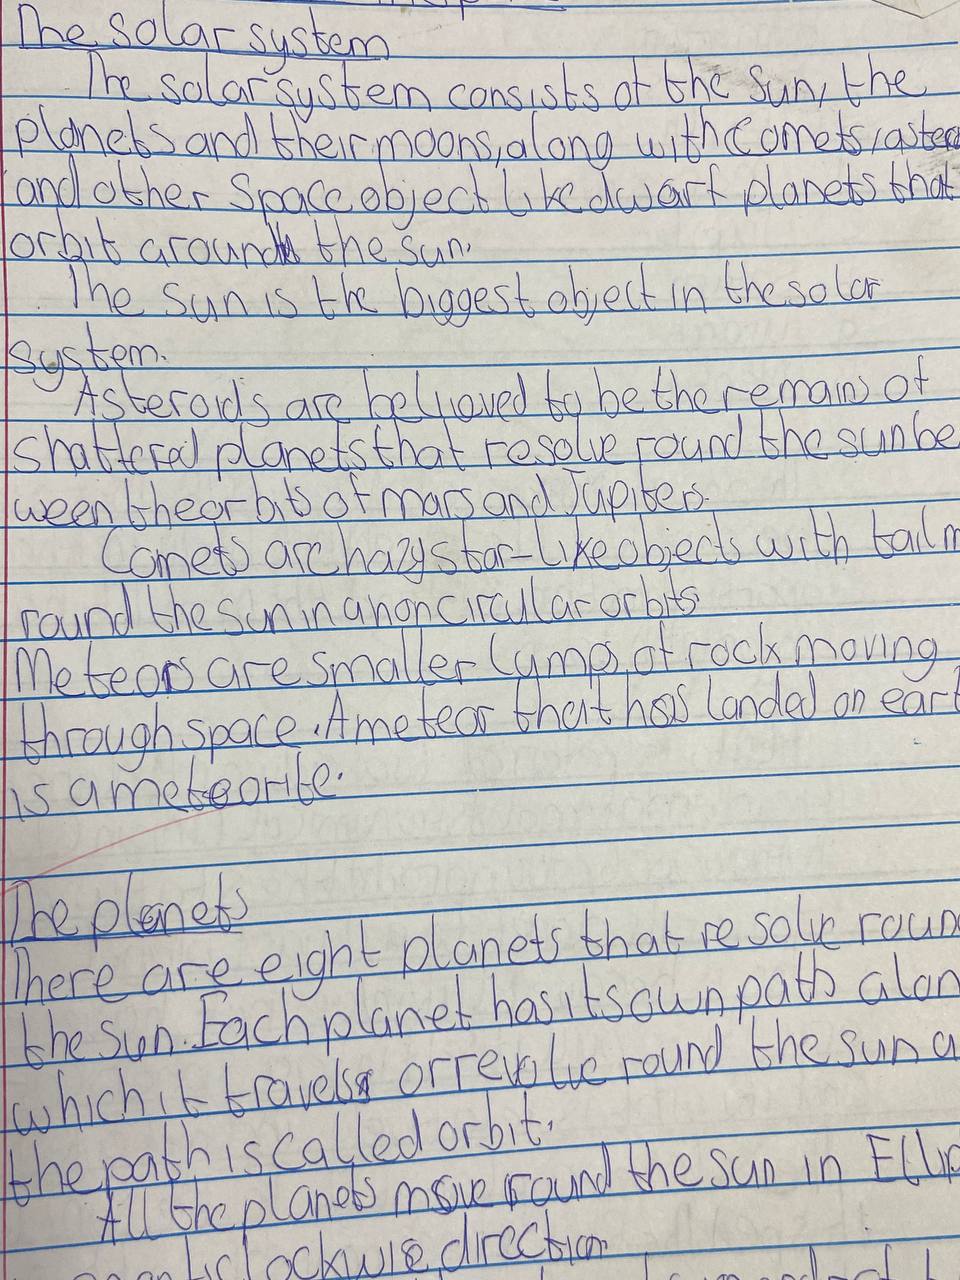 The solar system
The solar system consists of the Sun, the
planets and their moons, along with Comets, astero
and other Space object like dwarf planets that
orbit around the sun.
The Sun is the biggest object in the solar
system.
Asteroids are belived to be the remains of
shattered planets that resolve round the sun be
ween the orbits of mars and Jupiters.
Comets are hazy star-like objects with tail m
round the sun in a non circular orbits
Meteors are smaller lumps of rock moving
through space. A meteor that has landed on eart
is a meteorite.
The planets
There are eight planets that resolve roun
the sun. Each planet has its own path alon
which it travels or revolve round the sun a
the path is called orbit.
All the planets move round the sun in Ellip
clockwise direction